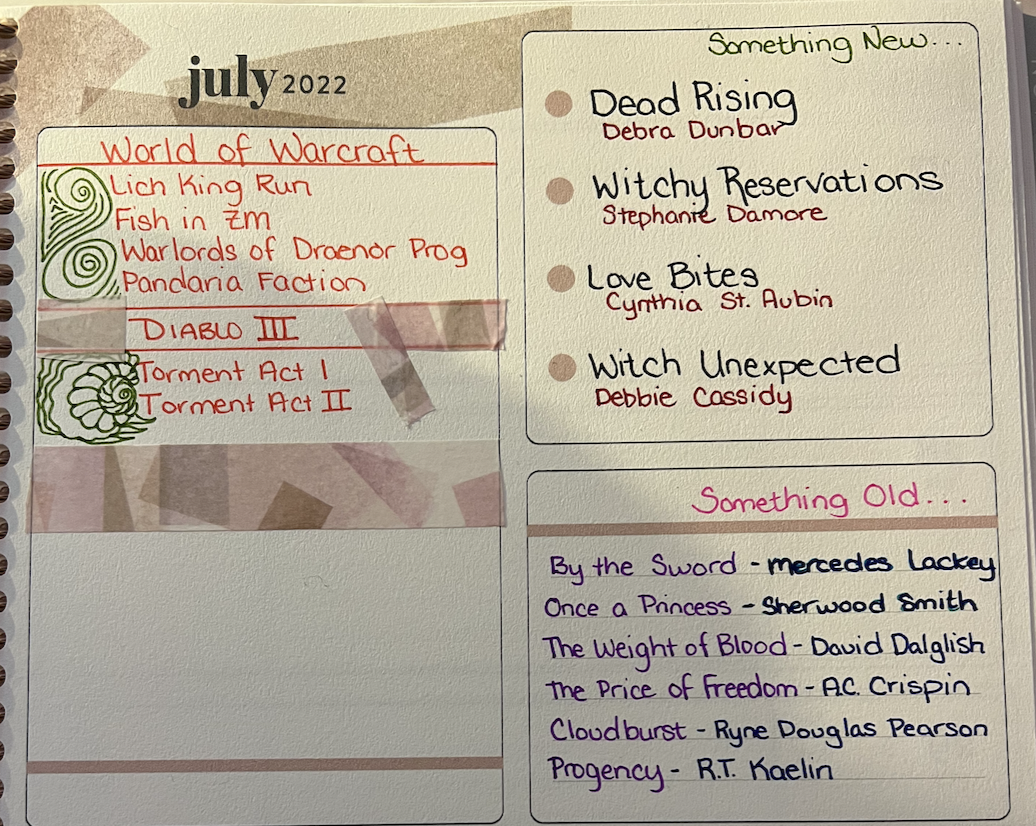 july 2022
World of Warcraft
Lich King Run
Fish in ZM
Warlords of Draenor Prog
Pandaria Faction
DIABLO III
Torment Act I
Torment Act II
Something New...
Dead Rising
Debra Dunbar
Witchy Reservations
Stephanie Damore
Love Bites
Cynthia St. Aubin
Witch Unexpected
Debbie Cassidy
Something Old...
By the Sword - mercedes Lackey
Once a Princess - Sherwood Smith
The Weight of Blood - David Dalglish
The Price of Freedom - A.C. Crispin
Cloudburst - Ryne Douglas Pearson
Progency - R.T. Kaelin